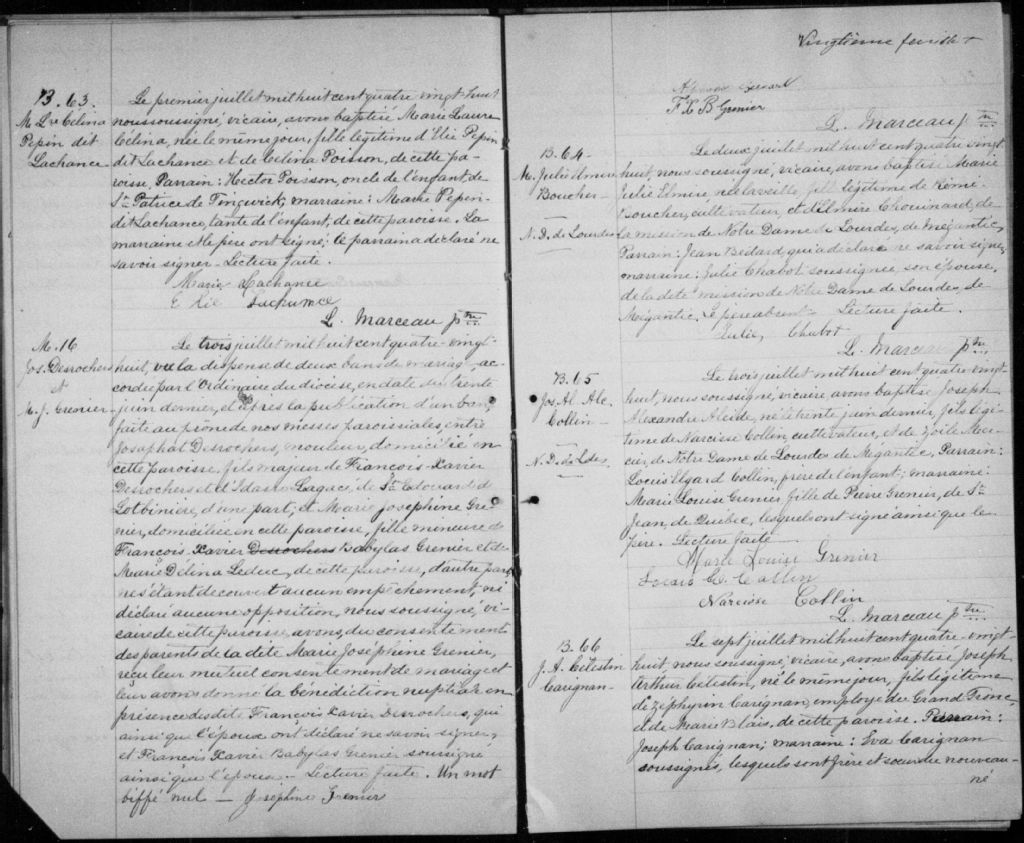 B. 63.
M. Lre Célina
Pepin dit
Lachance
Le premier juillet mil huit cent quatre vingt huit
nous soussigné, vicaire, avons baptisé Marie Laure
Célina, née le même jour, fille légitime d'Elie Pepin
dit Lachance et de Célina Poisson, de cette pa-
roisse, Parrain: Hector Poisson, oncle de l'enfant, de
St. Patrice de Tingwick; marraine: Marie Pepin-
dit Lachance, tante de l'enfant, de cette paroisse. La
marraine et le père ont signé; le parrain a déclaré ne
savoir signer. Lecture faite.
Marie Lachance
Elie Lachance
L. Marceau ptre
M. 16
Jos. Desrochers
et
M. J. Grenier
Le trois juillet mil huit cent quatre-vingt-
huit, vu la dispense de deux bans de mariage, ac-
cordée par l'Ordinaire du diocèse, en date du trente
juin dernier, et après la publication d'un ban,
faite au prône de nos messes paroissiales, entre
Josaphat Desrochers, mouleur, domicilié en
cette paroisse, fils majeur de François-Xavier
Desrochers et d'Idaïe Lagacé, de St. Edouard de
Lotbinière, d'une part; et Marie Josephine Gre-
nier, domiciliée en cette paroisse, fille mineure de
François-Xavier Desrochers Babylas Grenier et de
Marie Délina Leduc, de cette paroisse, d'autre part,
ne s'étant découvert aucun empêchement, ni
déclaré aucune opposition, nous soussigné, vi-
caire de cette paroisse, avons, du consentement
des parents de la dite Marie Joséphine Grenier,
reçu leur mutuel consentement de mariage et
leur avons donné la bénédiction nuptiale en
présence desdits François Xavier Desrochers, qui
ainsi que l'époux ont déclaré ne savoir signer,
et François Xavier Babylas Grenier soussigné
ainsi que l'épouse. Lecture faite. Un mot
biffé nul — Josephine Grenier
Vingtième feuillet
F X B Grenier
L. Marceau ptre
B. 64
M. Julie Elmire
Boucher
N. D. de Lourdes
Le deux juillet mil huit cent quatre vingt
huit, nous soussigné, vicaire, avons baptisé Marie
Julie Elmire, née la veille, fille légitime de Rémi
Boucher, cultivateur, et d'Elmire Chouinard, de
la mission de Notre Dame de Lourdes, de Mégantic,
Parrain: Jean Bédard qui a déclaré ne savoir signer,
marraine: Julie Chabot soussignée, son épouse,
de la dite mission de Notre Dame de Lourdes de
Mégantic. Le père absent. Lecture faite.
Julie Chabot
L. Marceau ptre
B. 65
Jos. Al. Alc.
Collin
N. D. de Ldes
Le trois juillet mil huit cent quatre vingt
huit, nous soussigné, vicaire, avons baptisé Joseph
Alexandre Alcide, né le trente juin dernier, fils légi-
time de Narcisse Collin, cultivateur, et de Zoïle Mer-
cier, de Notre Dame de Lourdes de Mégantic, Parrain:
Louis Elgard Collin, frère de l'enfant; marraine:
Marie Louise Grenier fille de Pierre Grenier, de St.
Jean, de Québec, lesquels ont signé ainsi que le
père. Lecture faite
Marie Louise Grenier
Louis E. Collin
Narcisse Collin
L. Marceau ptre
B. 66
J. A. Célestin
Carignan
Le sept juillet mil huit cent quatre-vingt-
huit, nous soussigné, vicaire, avons baptisé Joseph
Arthur Célestin, né le même jour, fils légitime
de Zéphyrin Carignan, employé du Grand Tronc,
et de Marie Blais, de cette paroisse. Parrain:
Joseph Carignan; marraine: Eva Carignan
soussignés, lesquels sont frère et sœur du nouveau-
né